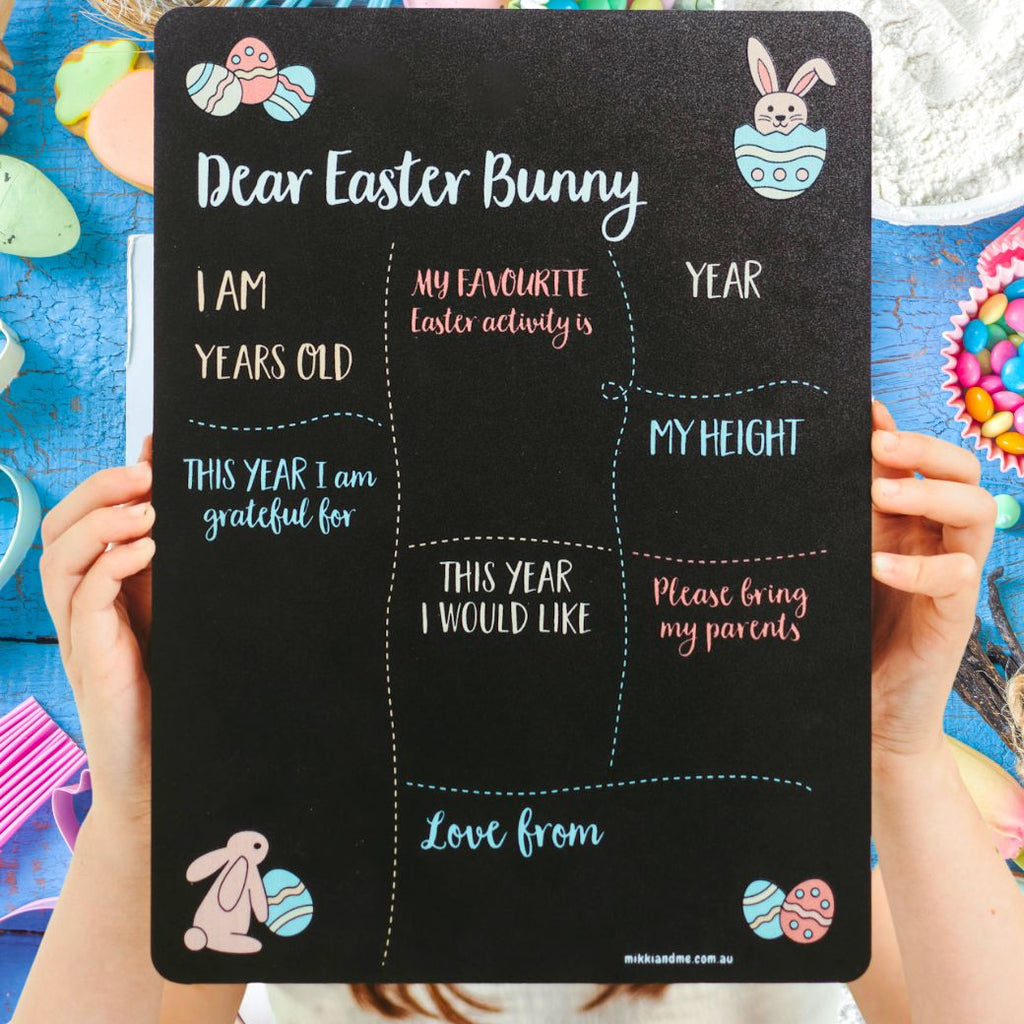 Dear Easter Bunny
I AM
YEARS OLD
THIS YEAR I am
grateful for
MY FAVOURITE
Easter activity is
THIS YEAR
I WOULD LIKE
YEAR
MY HEIGHT
Please bring
my parents
Love from
mikkiandme.com.au